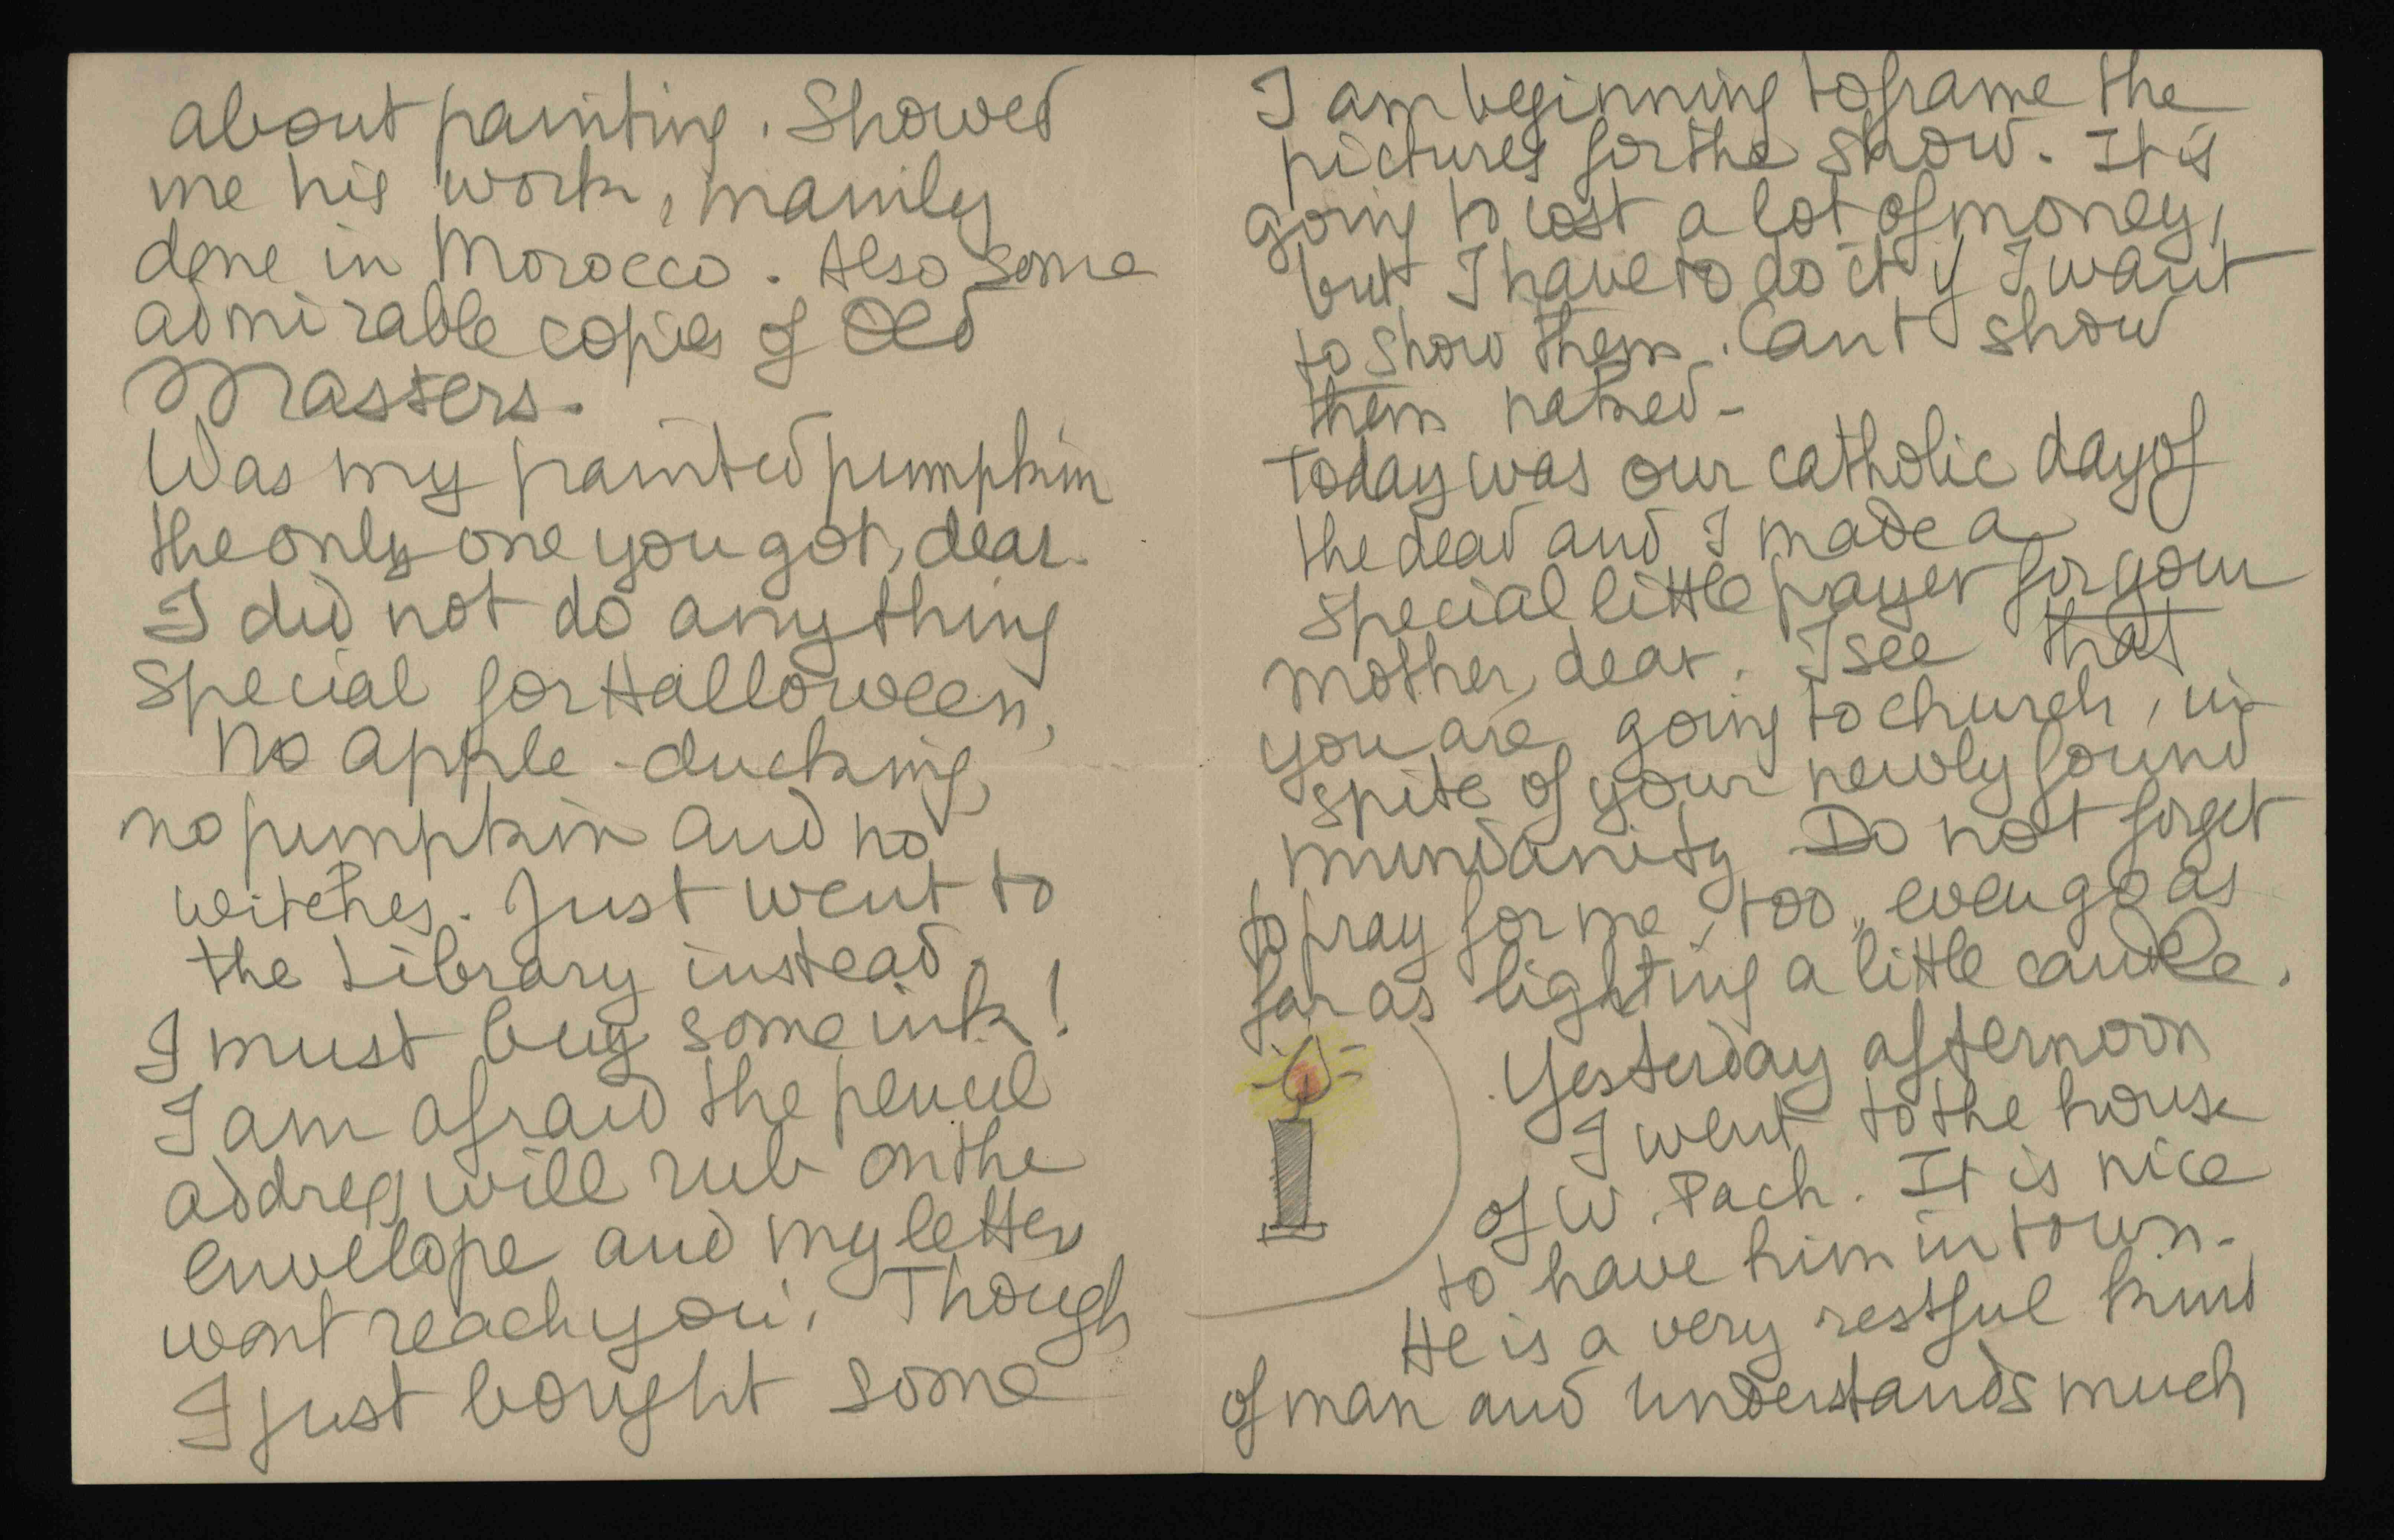 I am beginning to frame the
pictures for the show. It is
going to cost a lot of money,
but I have to do it if I want
to show them. Cant show
them naked -
Today was our catholic day of
the dead and I made a
special little prayer for your
mother, dear. I see that
you are going to church, in
spite of your newly found
mundanity. Do not forget
to pray for me, too, even go as
far as lighting a little candle.
Yesterday afternoon
I went to the house
of W. Pach. It is nice
to have him in town.
He is a very restful kind
of man and understands much
about painting. Showed
me his work, mainly
done in Morocco. Also some
admirable copies of Old
Masters.
Was my painted pumpkin
the only one you got, dear.
I did not do anything
special for Halloween,
No apple-ducking,
no pumpkin and no
witches. Just went to
the Library instead.
I must buy some ink!
I am afraid the pencil
address will rub on the
envelope and my letter
wont reach you. Though
I just bought some